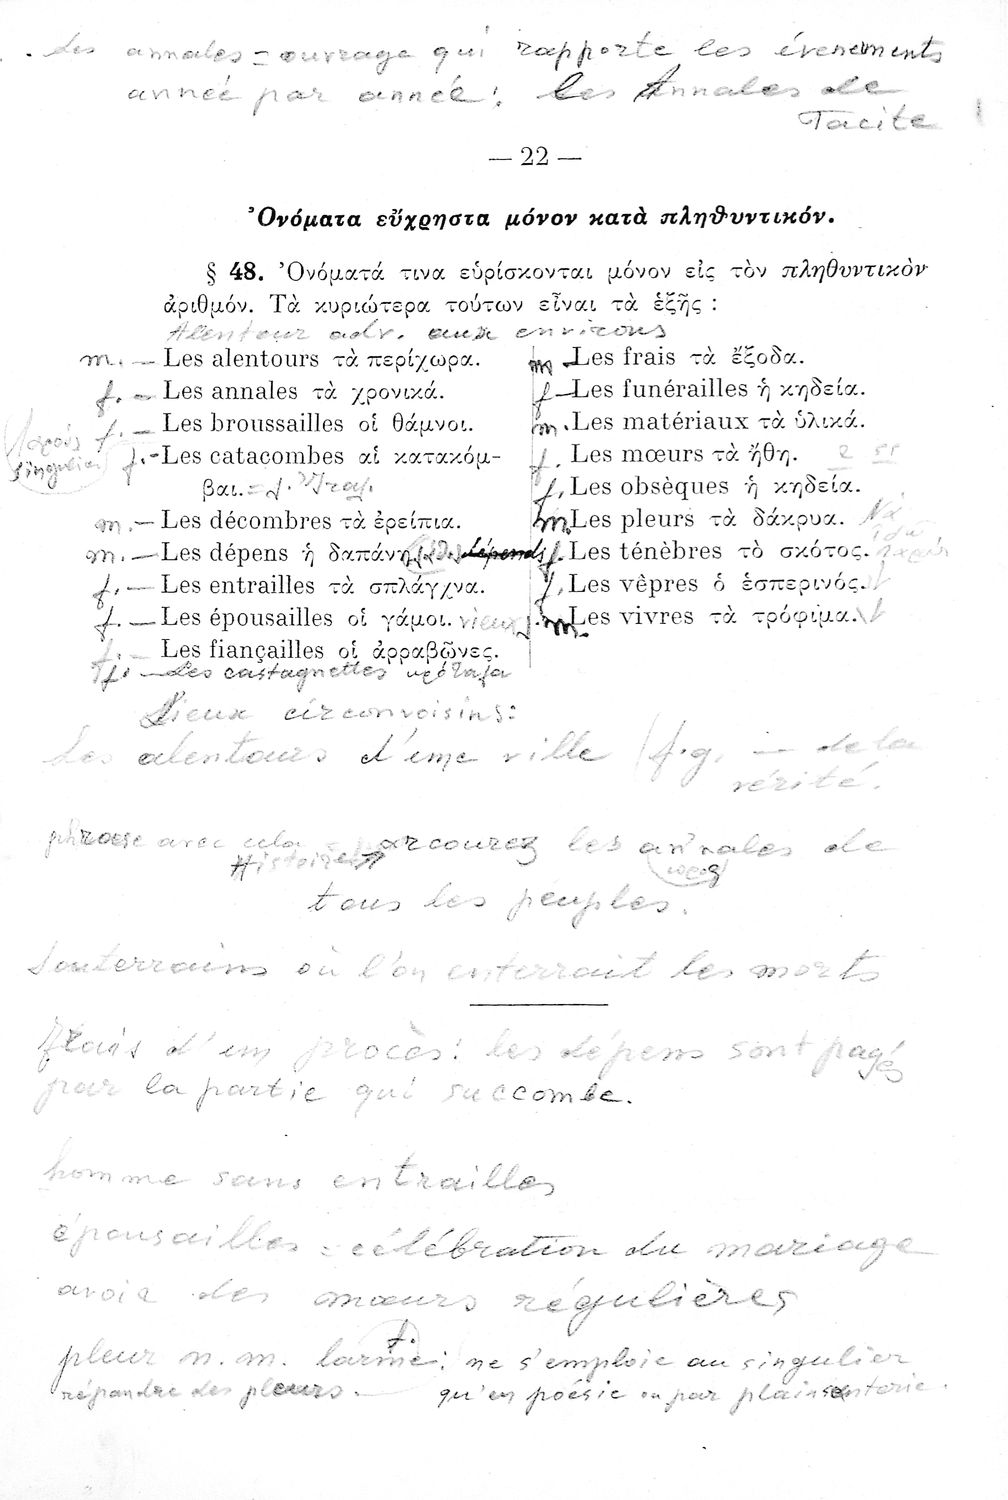 Les annales = ouvrage qui rapporte les événements
année par année: les Annales de
Tacite
— 22 —
Ὀνόματα εὔχρηστα μόνον κατὰ πληθυντικόν.
§ 48. Ὀνόματά τινα εὑρίσκονται μόνον εἰς τὸν πληθυντικὸν
ἀριθμόν. Τὰ κυριώτερα τούτων εἶναι τὰ ἑξῆς :
Alentour adv. aux environs
m. — Les alentours τὰ περίχωρα.
f. — Les annales τὰ χρονικά.
f. — Les broussailles οἱ θάμνοι.
singulier
f. — Les catacombes αἱ κατακόμ-
βαι.
m. — Les décombres τὰ ἐρείπια.
m. — Les dépens ἡ δαπάνη.
f. — Les entrailles τὰ σπλάγχνα.
f. — Les épousailles οἱ γάμοι. vieux
f. — Les fiançailles οἱ ἀρραβῶνες.
f. — Les castagnettes κρόταλα
m. Les frais τὰ ἔξοδα.
f — Les funérailles ἡ κηδεία.
m. Les matériaux τὰ ὑλικά.
f. Les mœurs τὰ ἤθη.
f. Les obsèques ἡ κηδεία.
m. Les pleurs τὰ δάκρυα.
f. Les ténèbres τὸ σκότος.
f. Les vêpres ὁ ἑσπερινός.
m. Les vivres τὰ τρόφιμα.
Lieux circonvoisins:
Les alentours d'une ville (f.g. — de la
vérité.
phrase avec cela parcourez les annales de
Histoires
tous les peuples.
Souterrains où l'on enterrait les morts
Frais d'un procès: les dépens sont payés
par la partie qui succombe.
homme sans entrailles
épousailles = célébration du mariage
avoir des mœurs régulières
f.
pleur n. m. larme; ne s'emploie au singulier
répandre des pleurs. — qu'en poésie ou par plaisanterie.